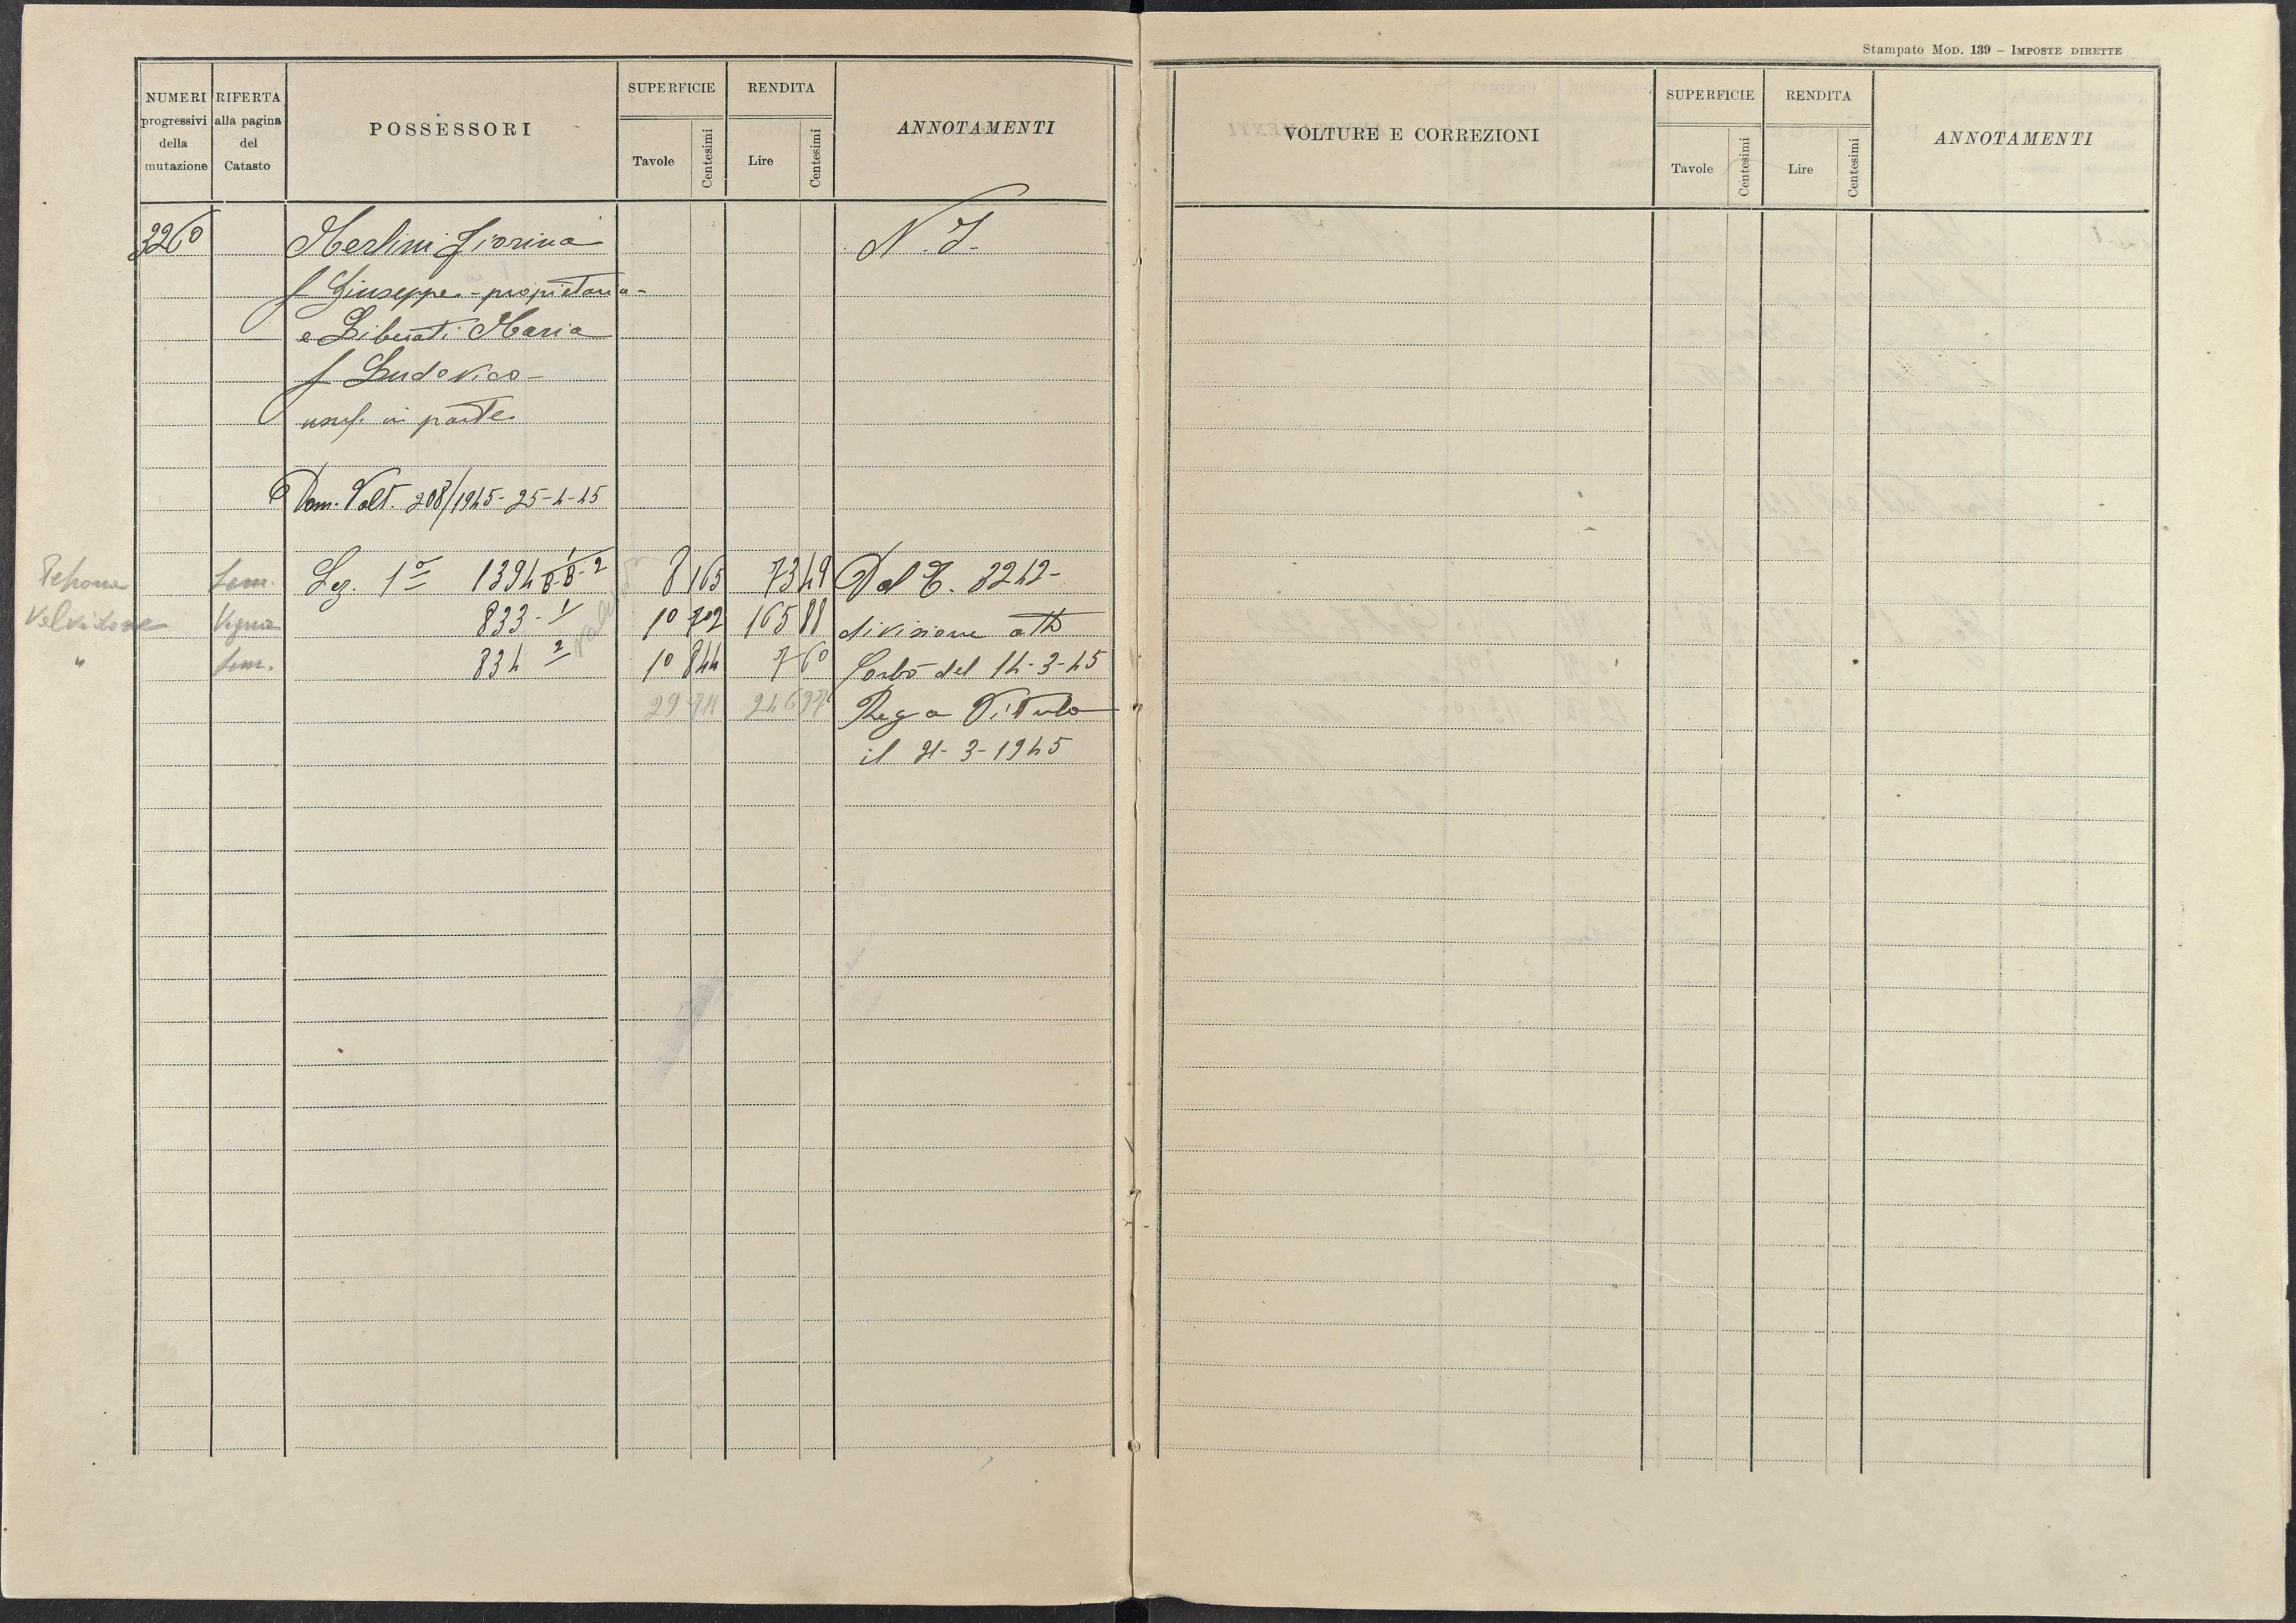 Stampato Mod. 139 – Imposte dirette
NUMERI progressivi della mutazione
RIFERTA alla pagina del Catasto
POSSESSORI
SUPERFICIE
Tavole
Centesimi
RENDITA
Lire
Centesimi
ANNOTAMENTI
VOLTURE E CORREZIONI
SUPERFICIE
Tavole
Centesimi
RENDITA
Lire
Centesimi
ANNOTAMENTI
3260 Merlini Fiorina N. I.
f Giuseppe - proprietaria -
e Liberati Maria
f Ludovico -
usuf. in parte
Dom. Volt. 208/1945 - 25-4-45
Sem. Sez. 1ª 1394 8 165 73 49 Dal C. 3242 -
Vigna 833 - 1 10 702 165 88 divisione atto
" Sem. 834 2 10 844 7 60 del 14-3-45
29 711 246 97 Reg a
il 21-3-1945